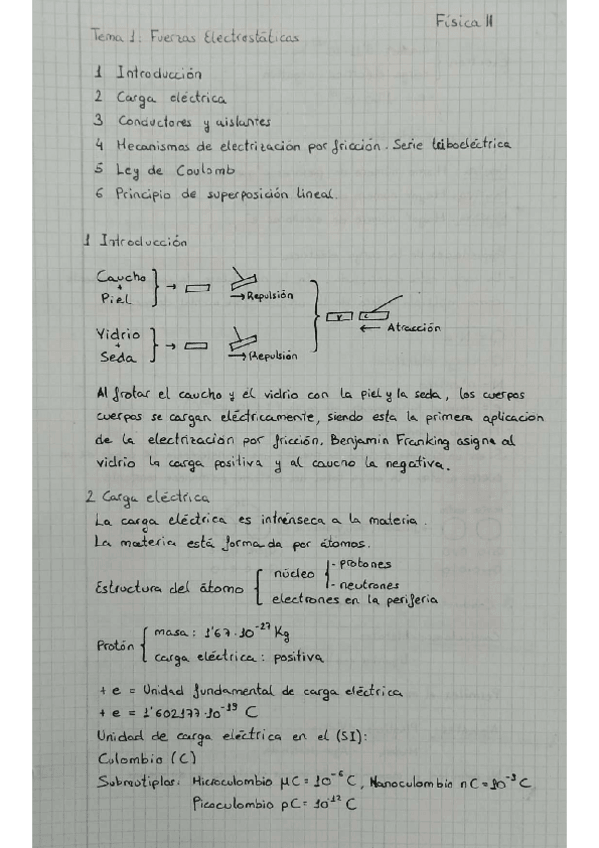 Física II
Tema 1: Fuerzas Electrostáticas
1 Introducción
2 Carga eléctrica
3 Conductores y aislantes
4 Mecanismos de electrización por fricción. Serie triboeléctrica
5 Ley de Coulomb
6 Principio de superposición lineal.
1 Introducción
Caucho
+
Piel
→ Repulsión
Vidrio
+
Seda
→ Repulsión
V
c
← Atracción
Al frotar el caucho y el vidrio con la piel y la seda, los cuerpos
cuerpos se cargan eléctricamente, siendo esta la primera aplicación
de la electrización por fricción. Benjamin Franking asigna al
vidrio la carga positiva y al caucho la negativa.
2 Carga eléctrica
La carga eléctrica es intrénseca a la materia.
La materia está formada por átomos.
Estructura del átomo { núcleo { - protones
- neutrones
electrones en la periferia
Protón { masa: 1'67·10⁻²⁷ Kg
carga eléctrica: positiva
+ e = Unidad fundamental de carga eléctrica
+ e = 1'602177·10⁻¹⁹ C
Unidad de carga eléctrica en el (SI):
Colombio (C)
Submútiplos: Microculombio μC = 10⁻⁶ C, Nanoculombio nC = 10⁻⁹ C
Picoculombio pC = 10⁻¹² C